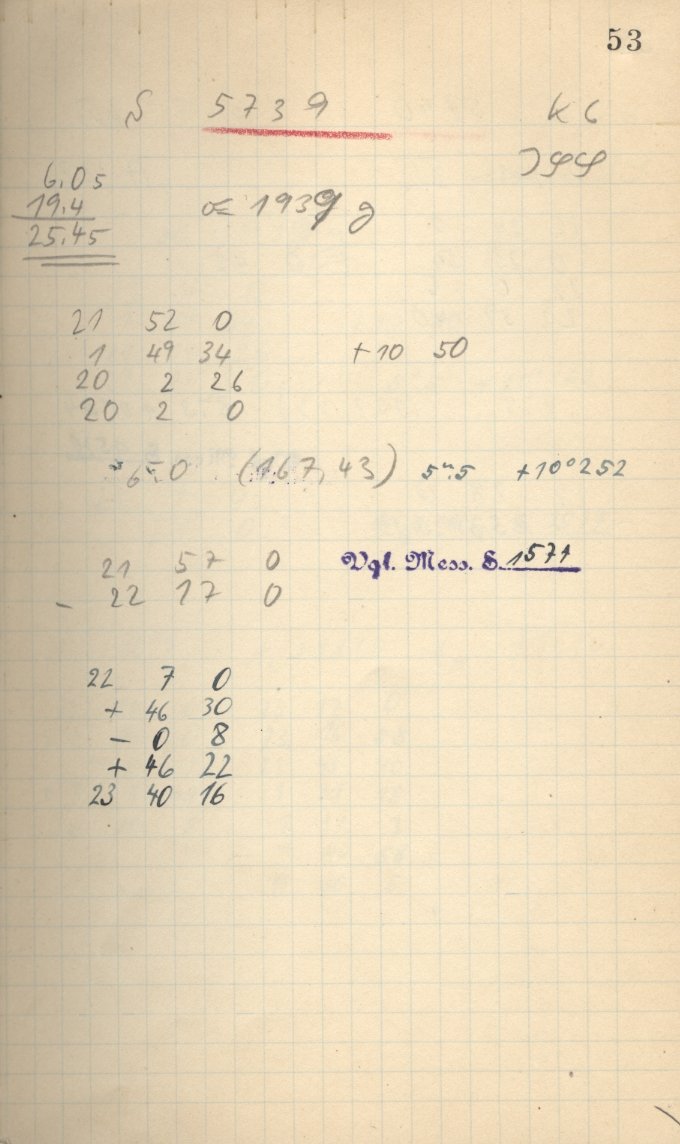 53
S 5739 K 6
JSS
6.05
19.4
25.45
1939
21 52 0
1 49 34 +10 50
20 2 26
20 2 0
6ᵐ.0 (167,43) 5ᵐ.5 +10°252
21 57 0 Vgl. Mess. S. 1571
- 22 17 0
22 7 0
+ 46 30
- 0 8
+ 46 22
23 40 16